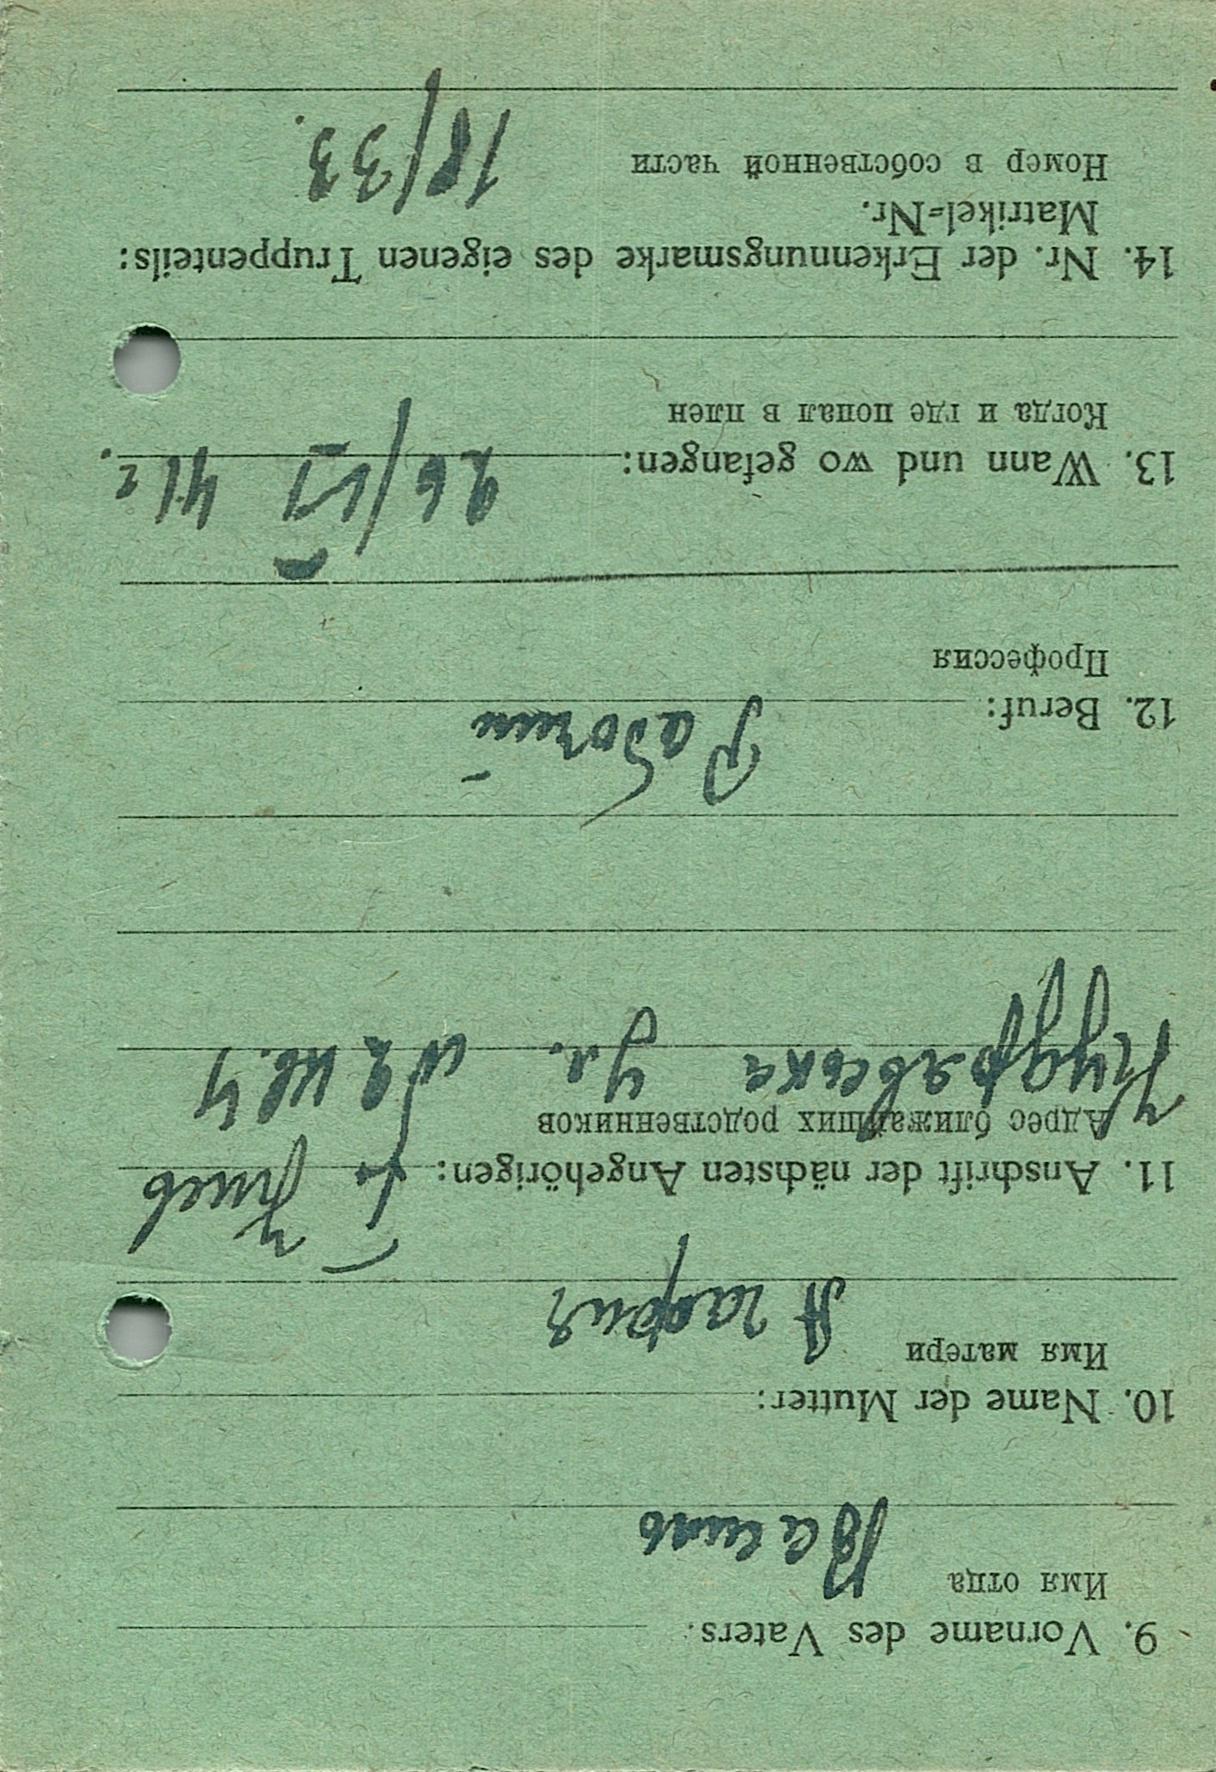 9. Vorname des Vaters.
Имя отца Василь
10. Name der Mutter:
Имя матери Агафия
11. Anschrift der nächsten Angehörigen: г. Киев
Адрес ближайших родственников
Кудрявська ул. № 2 кв. 4
12. Beruf: Рабочий
Профессия
13. Wann und wo gefangen: 26/VI 41 г.
Когда и где попал в плен
14. Nr. der Erkennungsmarke des eigenen Truppenteils:
Matrikel=Nr.
Номер в собственной части 18/33.